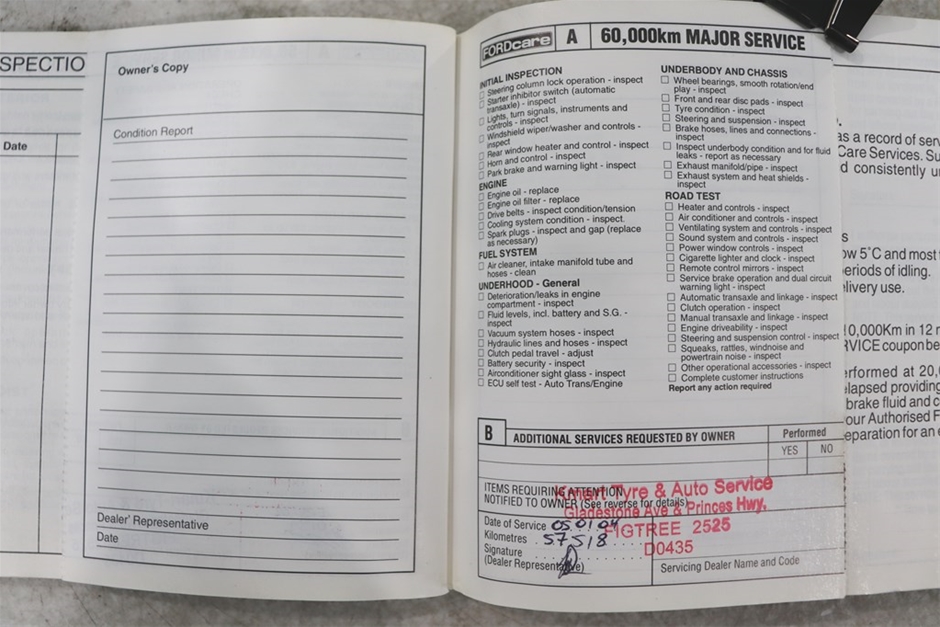 SPECTIO
Date
Owner's Copy
Condition Report
Dealer' Representative
Date
FORDcare A 60,000km MAJOR SERVICE
INITIAL INSPECTION
Steering column lock operation - inspect
Starter inhibitor switch (automatic
transaxle) - inspect
Lights, turn signals, instruments and
controls - inspect
Windshield wiper/washer and controls -
inspect
Rear window heater and control - inspect
Horn and control - inspect
Park brake and warning light - inspect
ENGINE
Engine oil - replace
Engine oil filter - replace
Drive belts - inspect condition/tension
Cooling system condition - inspect.
Spark plugs - inspect and gap (replace
as necessary)
FUEL SYSTEM
Air cleaner, intake manifold tube and
hoses - clean
UNDERHOOD - General
Deterioration/leaks in engine
compartment - inspect
Fluid levels, incl. battery and S.G. -
inspect
Vacuum system hoses - inspect
Hydraulic lines and hoses - inspect
Clutch pedal travel - adjust
Battery security - inspect
Airconditioner sight glass - inspect
ECU self test - Auto Trans/Engine
UNDERBODY AND CHASSIS
Wheel bearings, smooth rotation/end
play - inspect
Front and rear disc pads - inspect
Tyre condition - inspect
Steering and suspension - inspect
Brake hoses, lines and connections -
inspect
Inspect underbody condition and for fluid
leaks - report as necessary
Exhaust manifold/pipe - inspect
Exhaust system and heat shields -
inspect
ROAD TEST
Heater and controls - inspect
Air conditioner and controls - inspect
Ventilating system and controls - inspect
Sound system and controls - inspect
Power window controls - inspect
Cigarette lighter and clock - inspect
Remote control mirrors - inspect
Service brake operation and dual circuit
warning light - inspect
Automatic transaxle and linkage - inspect
Clutch operation - inspect
Manual transaxle and linkage - inspect
Engine driveability - inspect
Steering and suspension control - inspect
Squeaks, rattles, windnoise and
powertrain noise - inspect
Other operational accessories - inspect
Complete customer instructions
Report any action required
B ADDITIONAL SERVICES REQUESTED BY OWNER
Performed
YES NO
ITEMS REQUIRING ATTENTION
NOTIFIED TO OWNER (See reverse for details)
Kmart Tyre & Auto Service
Gladestone Ave & Princes Hwy,
FIGTREE 2525
D0435
Date of Service 05 01 04
Kilometres 57518
Signature
(Dealer Representative)
Servicing Dealer Name and Code
as a record of serv
Care Services. Su
d consistently u
s
ow 5°C and most
eriods of idling.
elivery use.
0,000Km in 12 m
RVICE coupon be
erformed at 20,0
elapsed providing
brake fluid and c
our Authorised F
eparation for an e